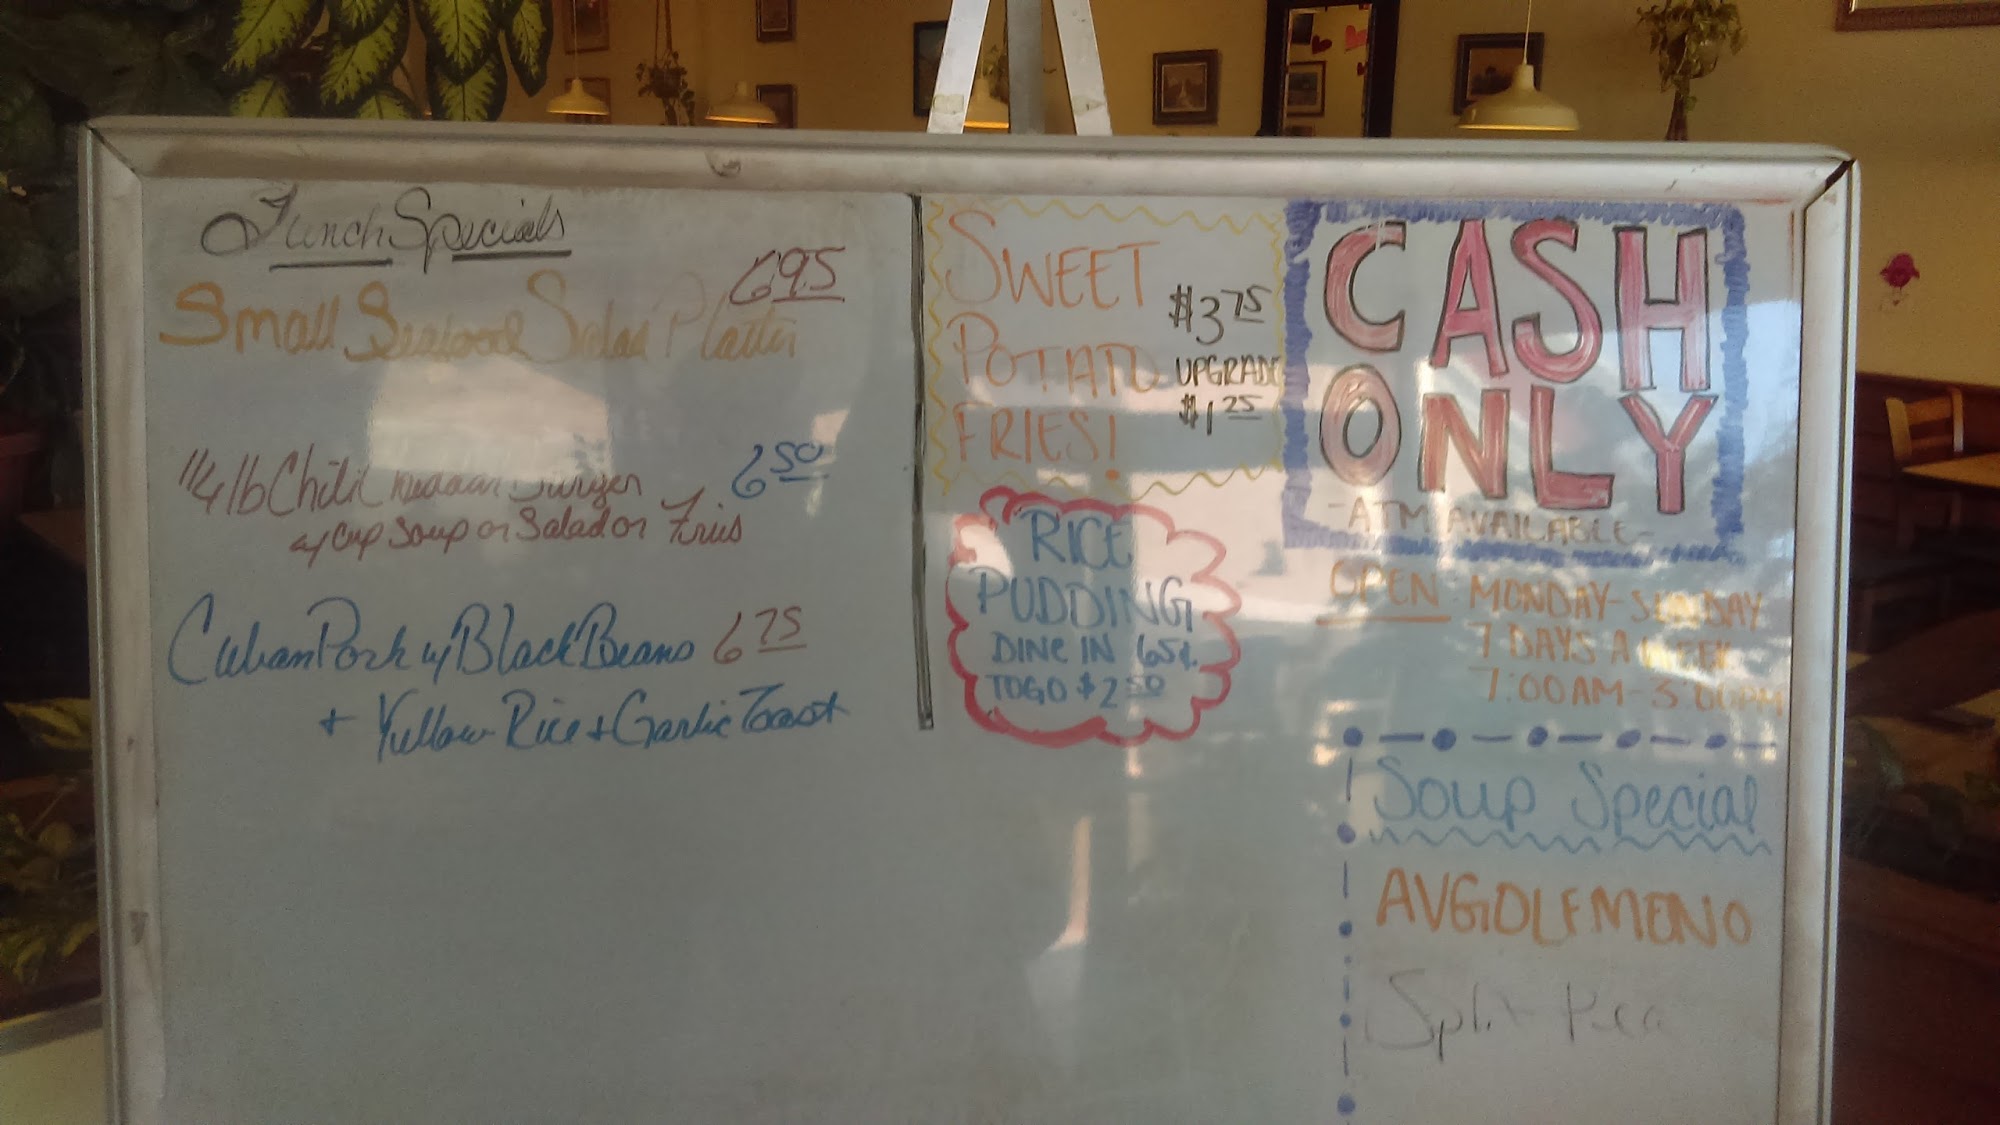 Lunch Specials
Small Seafood Salad Platter 6.95
1/4 lb Chili Cheddar Burger 6.50
w/ Cup Soup or Salad or Fries
Cuban Pork w/ Black Beans 6.75
+ Yellow Rice + Garlic Toast
SWEET
POTATO
FRIES!
$3.75
UPGRADE
$1.25
RICE
PUDDING
DINE IN 65¢
TOGO $2.50
CASH
ONLY
-ATM AVAILABLE-
OPEN MONDAY-SUNDAY
7 DAYS A WEEK
7:00AM-3:00PM
Soup Special
AVGOLEMENO
Split Pea